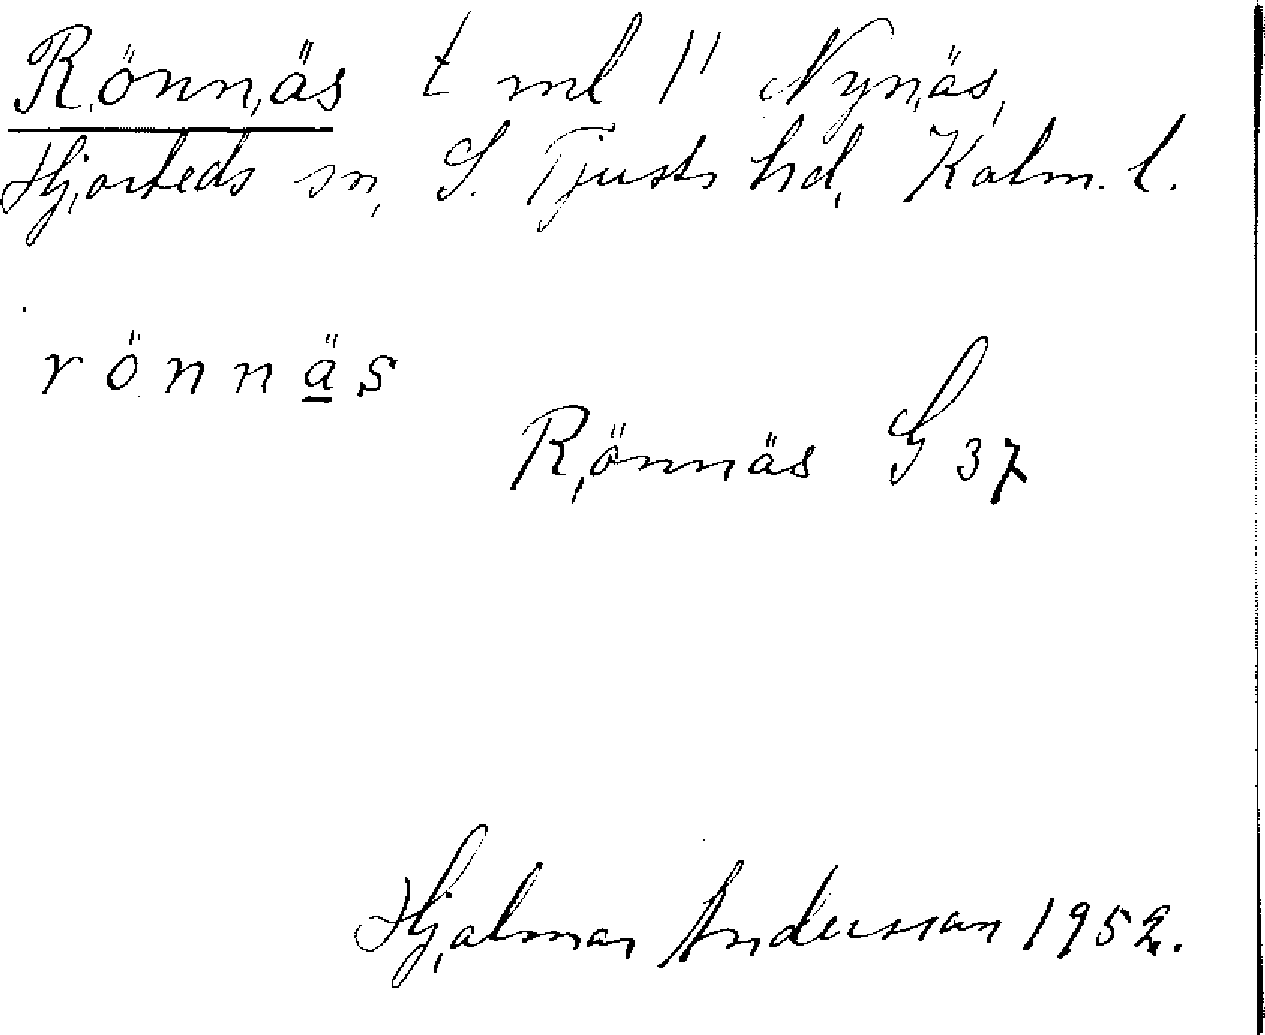 Rönnäs t ml 1" Nynäs,
Hjorteds sn, S. Tjusts hd, Kalm. l.
rönnäs
Rönnäs G 37
Hjalmar Andersson 1952.